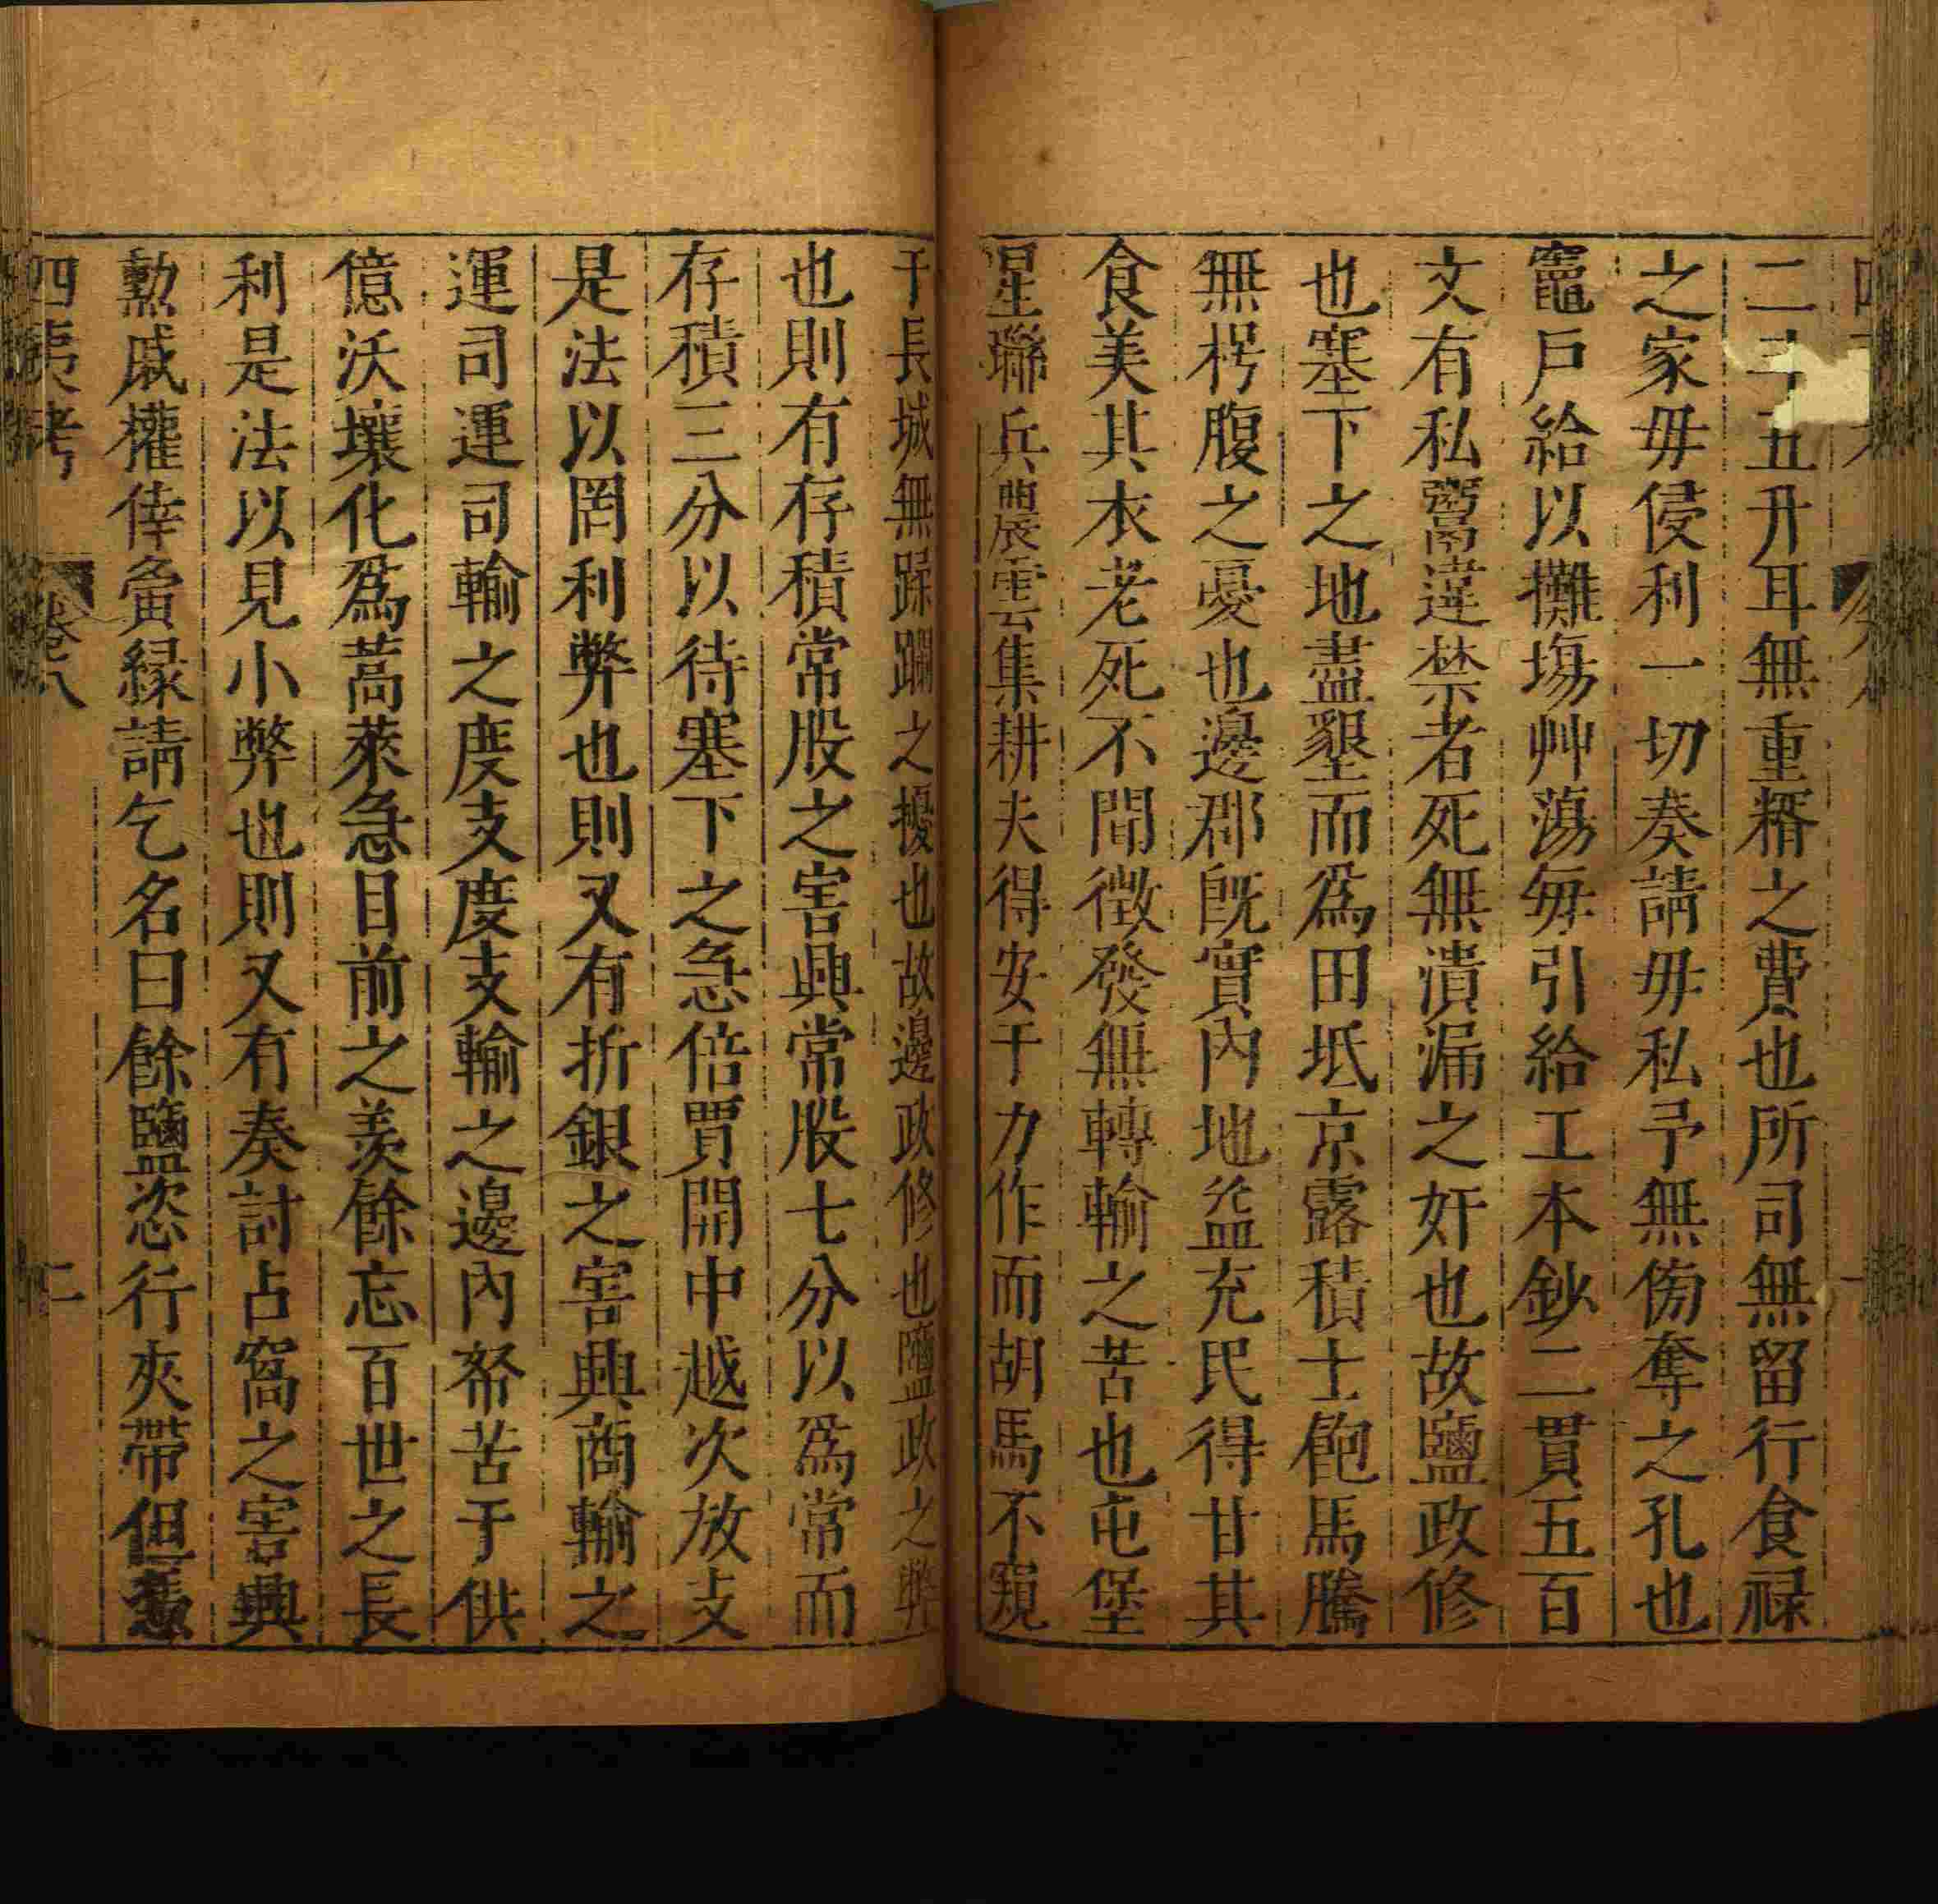 二斗五升耳無重糈之費也所司無留行食禄
之家毋侵利一切奏請毋私予無傍奪之孔也
竈戶給以攤塲艸蕩每引給工本鈔二貫五百
文有私鬻違禁者死無潰漏之奸也故鹽政修
也塞下之地盡墾而爲田坻京露積士飽馬騰
無枵腹之憂也邊郡旣實內地益充民得甘其
食美其衣老死不聞徵發無轉輸之苦也屯堡
星聯兵農雲集耕夫得安于力作而胡馬不窺
于長城無蹂躪之擾也故邊政修也鹽政之弊
也則有存積常股之害興常股七分以爲常而
存積三分以待塞下之急倍買開中越次放支
是法以罔利弊也則又有折銀之害興商輸之
運司運司輸之度支度支輸之邊內帑苦于供
億沃壤化爲蒿萊急目前之羨餘忘百世之長
利是法以見小弊也則又有奏討占窩之害興
勲戚權倖夤緣請乞名曰餘鹽恣行夾帶但
四夷考 卷八 二